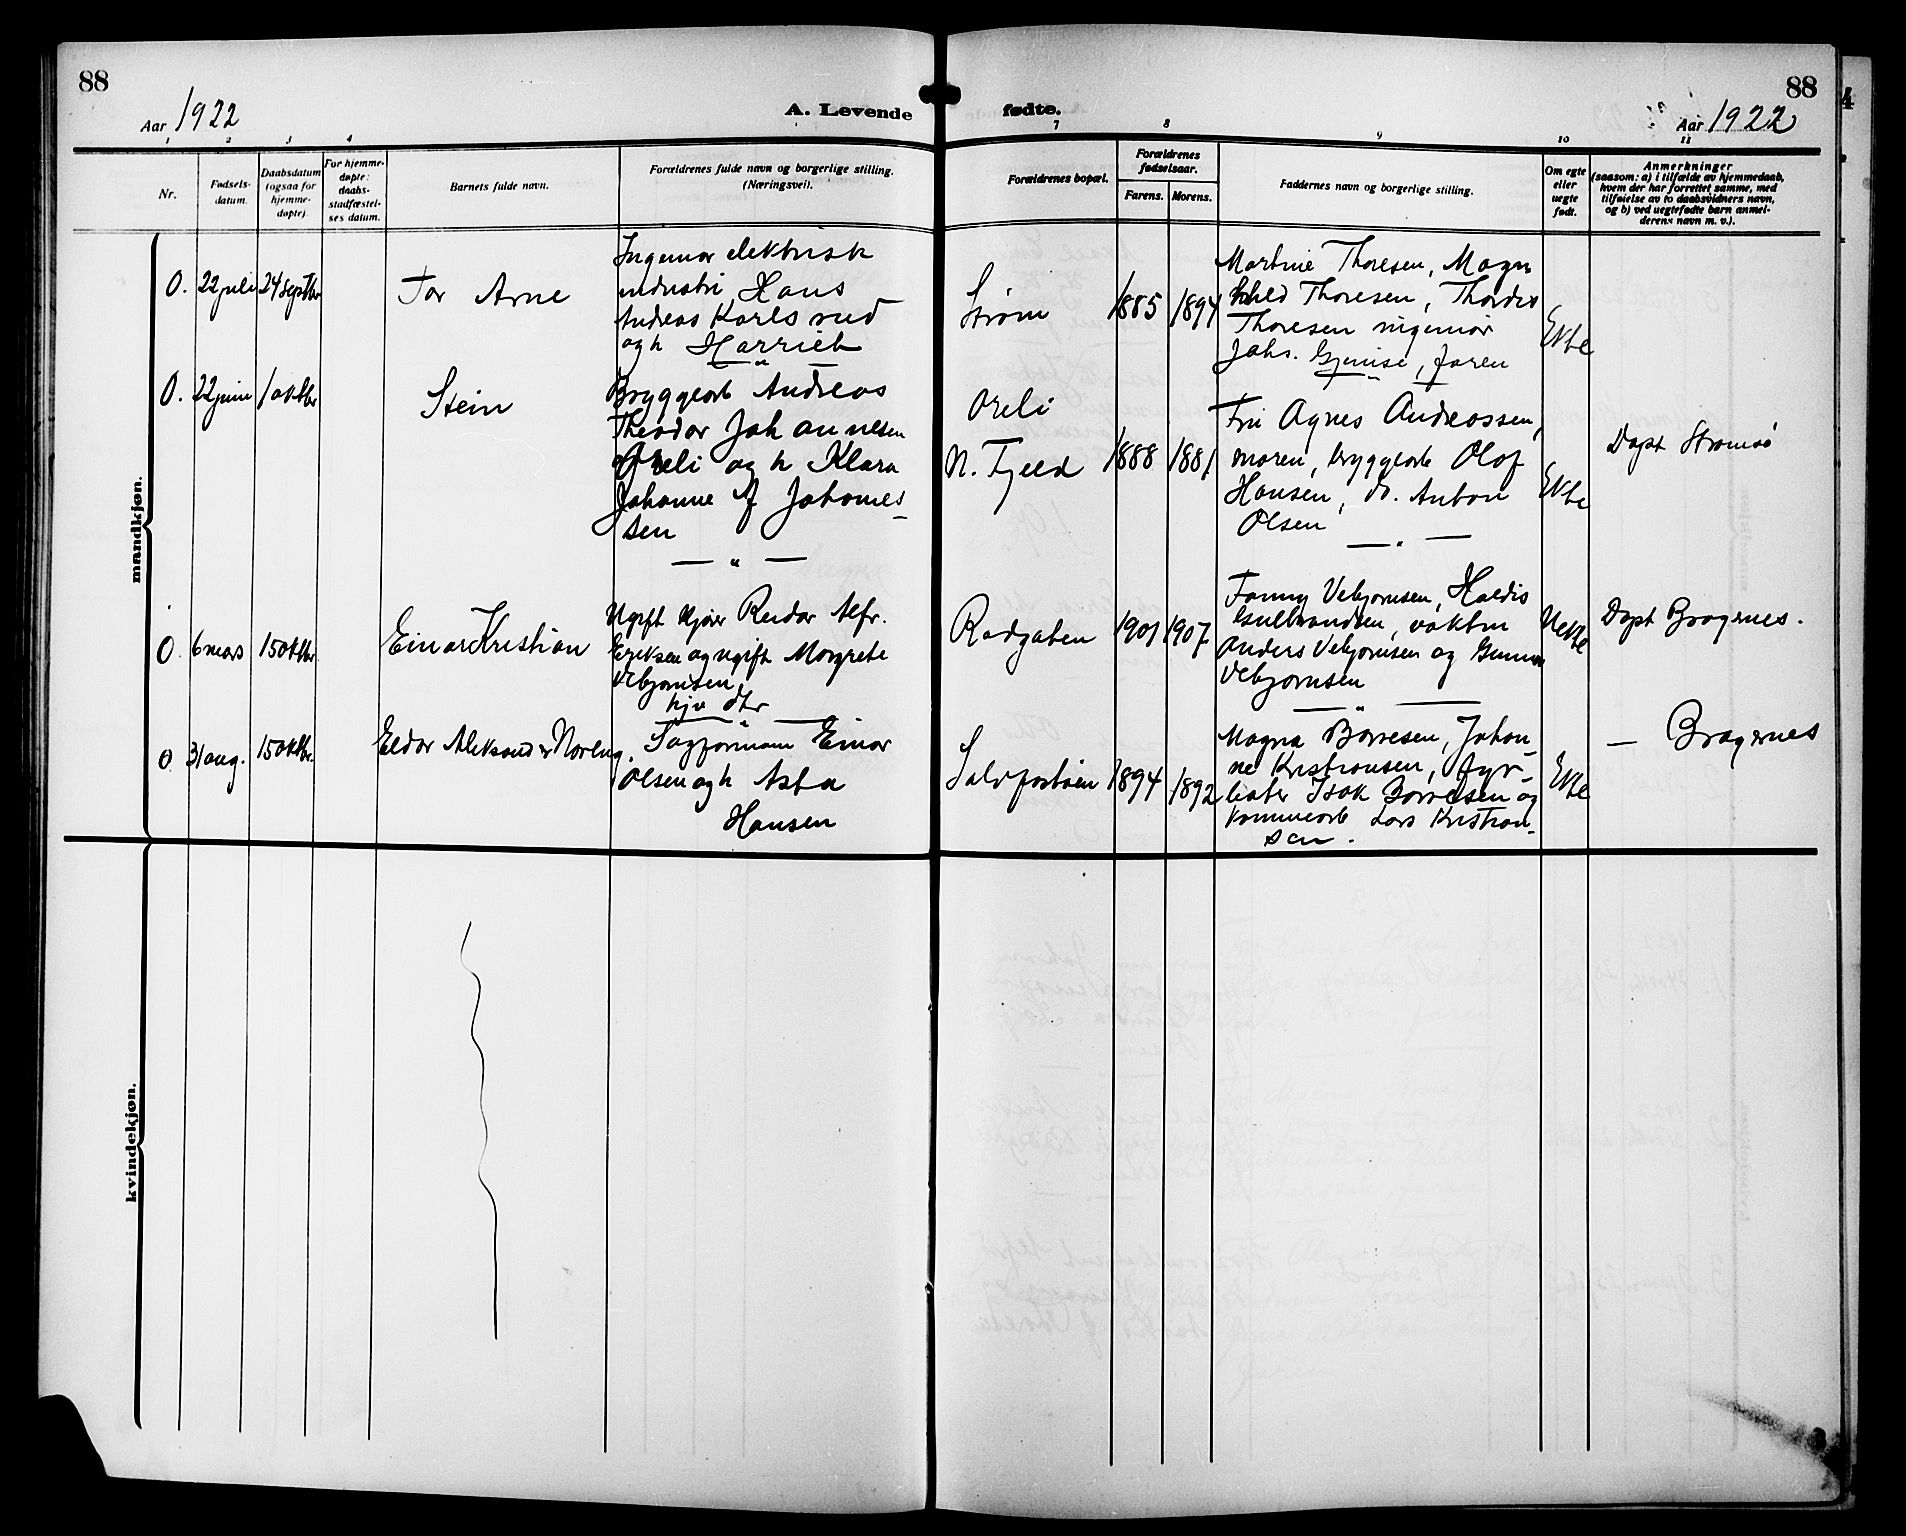 88
Aar 1922
A. Levende
fødte.
88
Aar 1922
1
2
3
4
7
8
9
10
11
Nr.
Fødsels-
datum.
Daabsdatum
(ogsaa for
hjemme-
døpte).
For hjemme-
døpte:
daabs-
stadfæstel-
ses datum.
Barnets fulde navn.
Forældrenes fulde navn og borgerlige stilling.
(Næringsvei).
Forældrenes bopæl.
Forældrenes
fødselsaar.
Farens.
Morens.
Faddernes navn og borgerlige stilling.
Om egte
eller
uegte
født.
Anmerkninger
(saasom: a) i tilfælde av hjemmedaab,
hvem der har forrettet samme, med
tilføielse av to daabsvidners navn,
og b) ved uegtefødte barn anmel-
derens navn m. v.).
mandkjøn.
0.
22 juli
24 septbr
Tor Arne
Ingeniør elektrisk
industri Hans
Andreas Karlsrud
og h Harriet
Strøm
1885
1894
Martine Thoresen, Magn
hild Thoresen, Thordis
Thoresen ingeniør
Johs. Gjemse, faren
Ekte
0.
22 juni
1 oktbr
Stein
Bryggearb Andreas
Theodor Johannesen
Oreli og h Klara
Johanne f Johannes-
sen
— " —
Oreli
N. Fjeld
1888
1881
Fru Agnes Andreassen,
moren, bryggearb Olof
Hansen, do. Anton
Olsen
— " —
Ekte
Døpt Strømsø
0
6 mars
15 oktbr
Einar Kristian
Ugift kjører Reidar Alfr.
Eriksen og ugift Margrete
Vebjørnsen,
hjv dtr
— " —
Rådgaten
1901
1907
Fanny Vebjørnsen, Haldis
Gulbrandsen, vaktm
Anders Vebjørnsen og Gunnar
Vebjørnsen
— " —
Uekte
Døpt Bragernes.
0
31 aug.
15 oktbr.
Eldar Aleksander Noreng.
Sagformann Einar
Olsen og h Asta
Hansen
1894
1892
Magna Børresen, Johan-
ne Kristiansen, fyr-
bøter Isak Børresen og
kommunearb Lars Kristian-
sen.
Ekte
— Bragernes
kvindekjøn.